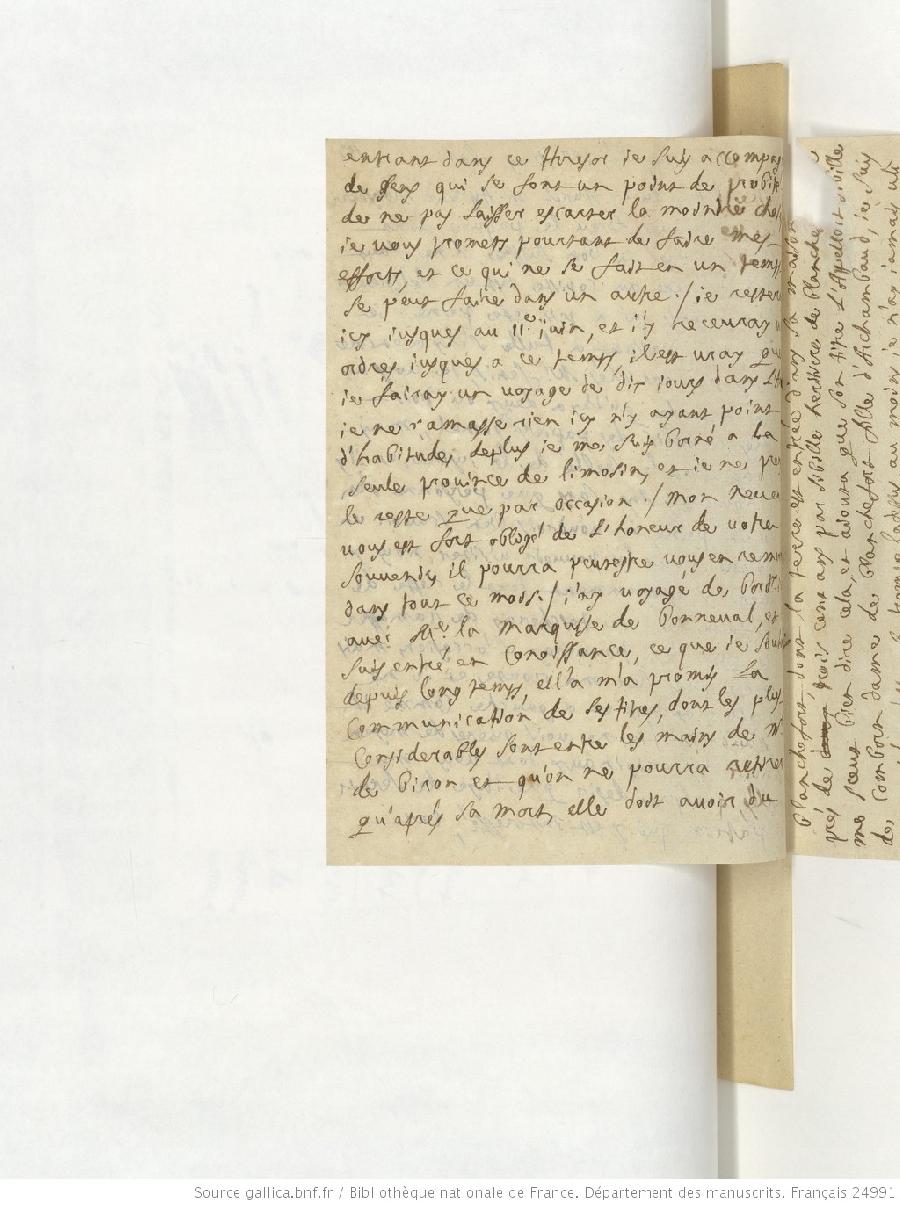 entrant dans ce thresor ie suis accompag
de gens qui se font un point de probit
de ne pas laisser escarter la moindre chos
ie vous promets pourtant de faire mes
efforts, et ce qui ne se fait en un temps
se peut faire dans un autre ./ ie rester
icy iusques au 11e iuin, et i'y receuray
ordres iusques a ce temps, il est vray que
ie fairay un voyage de dix iours dans
ie ne ramasse rien icy n'y ayant point
d'habitudes, deplus ie me suis borné a la
seule prouince de limosin, et ie ne
le reste que par occasion ./ mon neueu
vous est fort obligé de l'honeur de votre
souuenir, il pourra peutestre vous en reme
dans tout ce mois ./ i'ay voyagé de
auec Me la marquise de bonneual, et
suis entré en conoissance, ce que ie
depuis longtemps, ell'a m'a promis la
communication de ses titres, dont les plus
considerables sont entre les mains de Mr
de biron et qu'on ne pourra retirer
qu'aprés sa mort, elle doit auoir du
blanchefort, dont la terre est entrée dans sa maison
prés de trois cens ans par sibille heritiere de blanche
peut bien dire cela, et adiouta que son titre l'appelloit sibille
me comborn dame de blanchefort fille d'Archambaud, ie suis
de